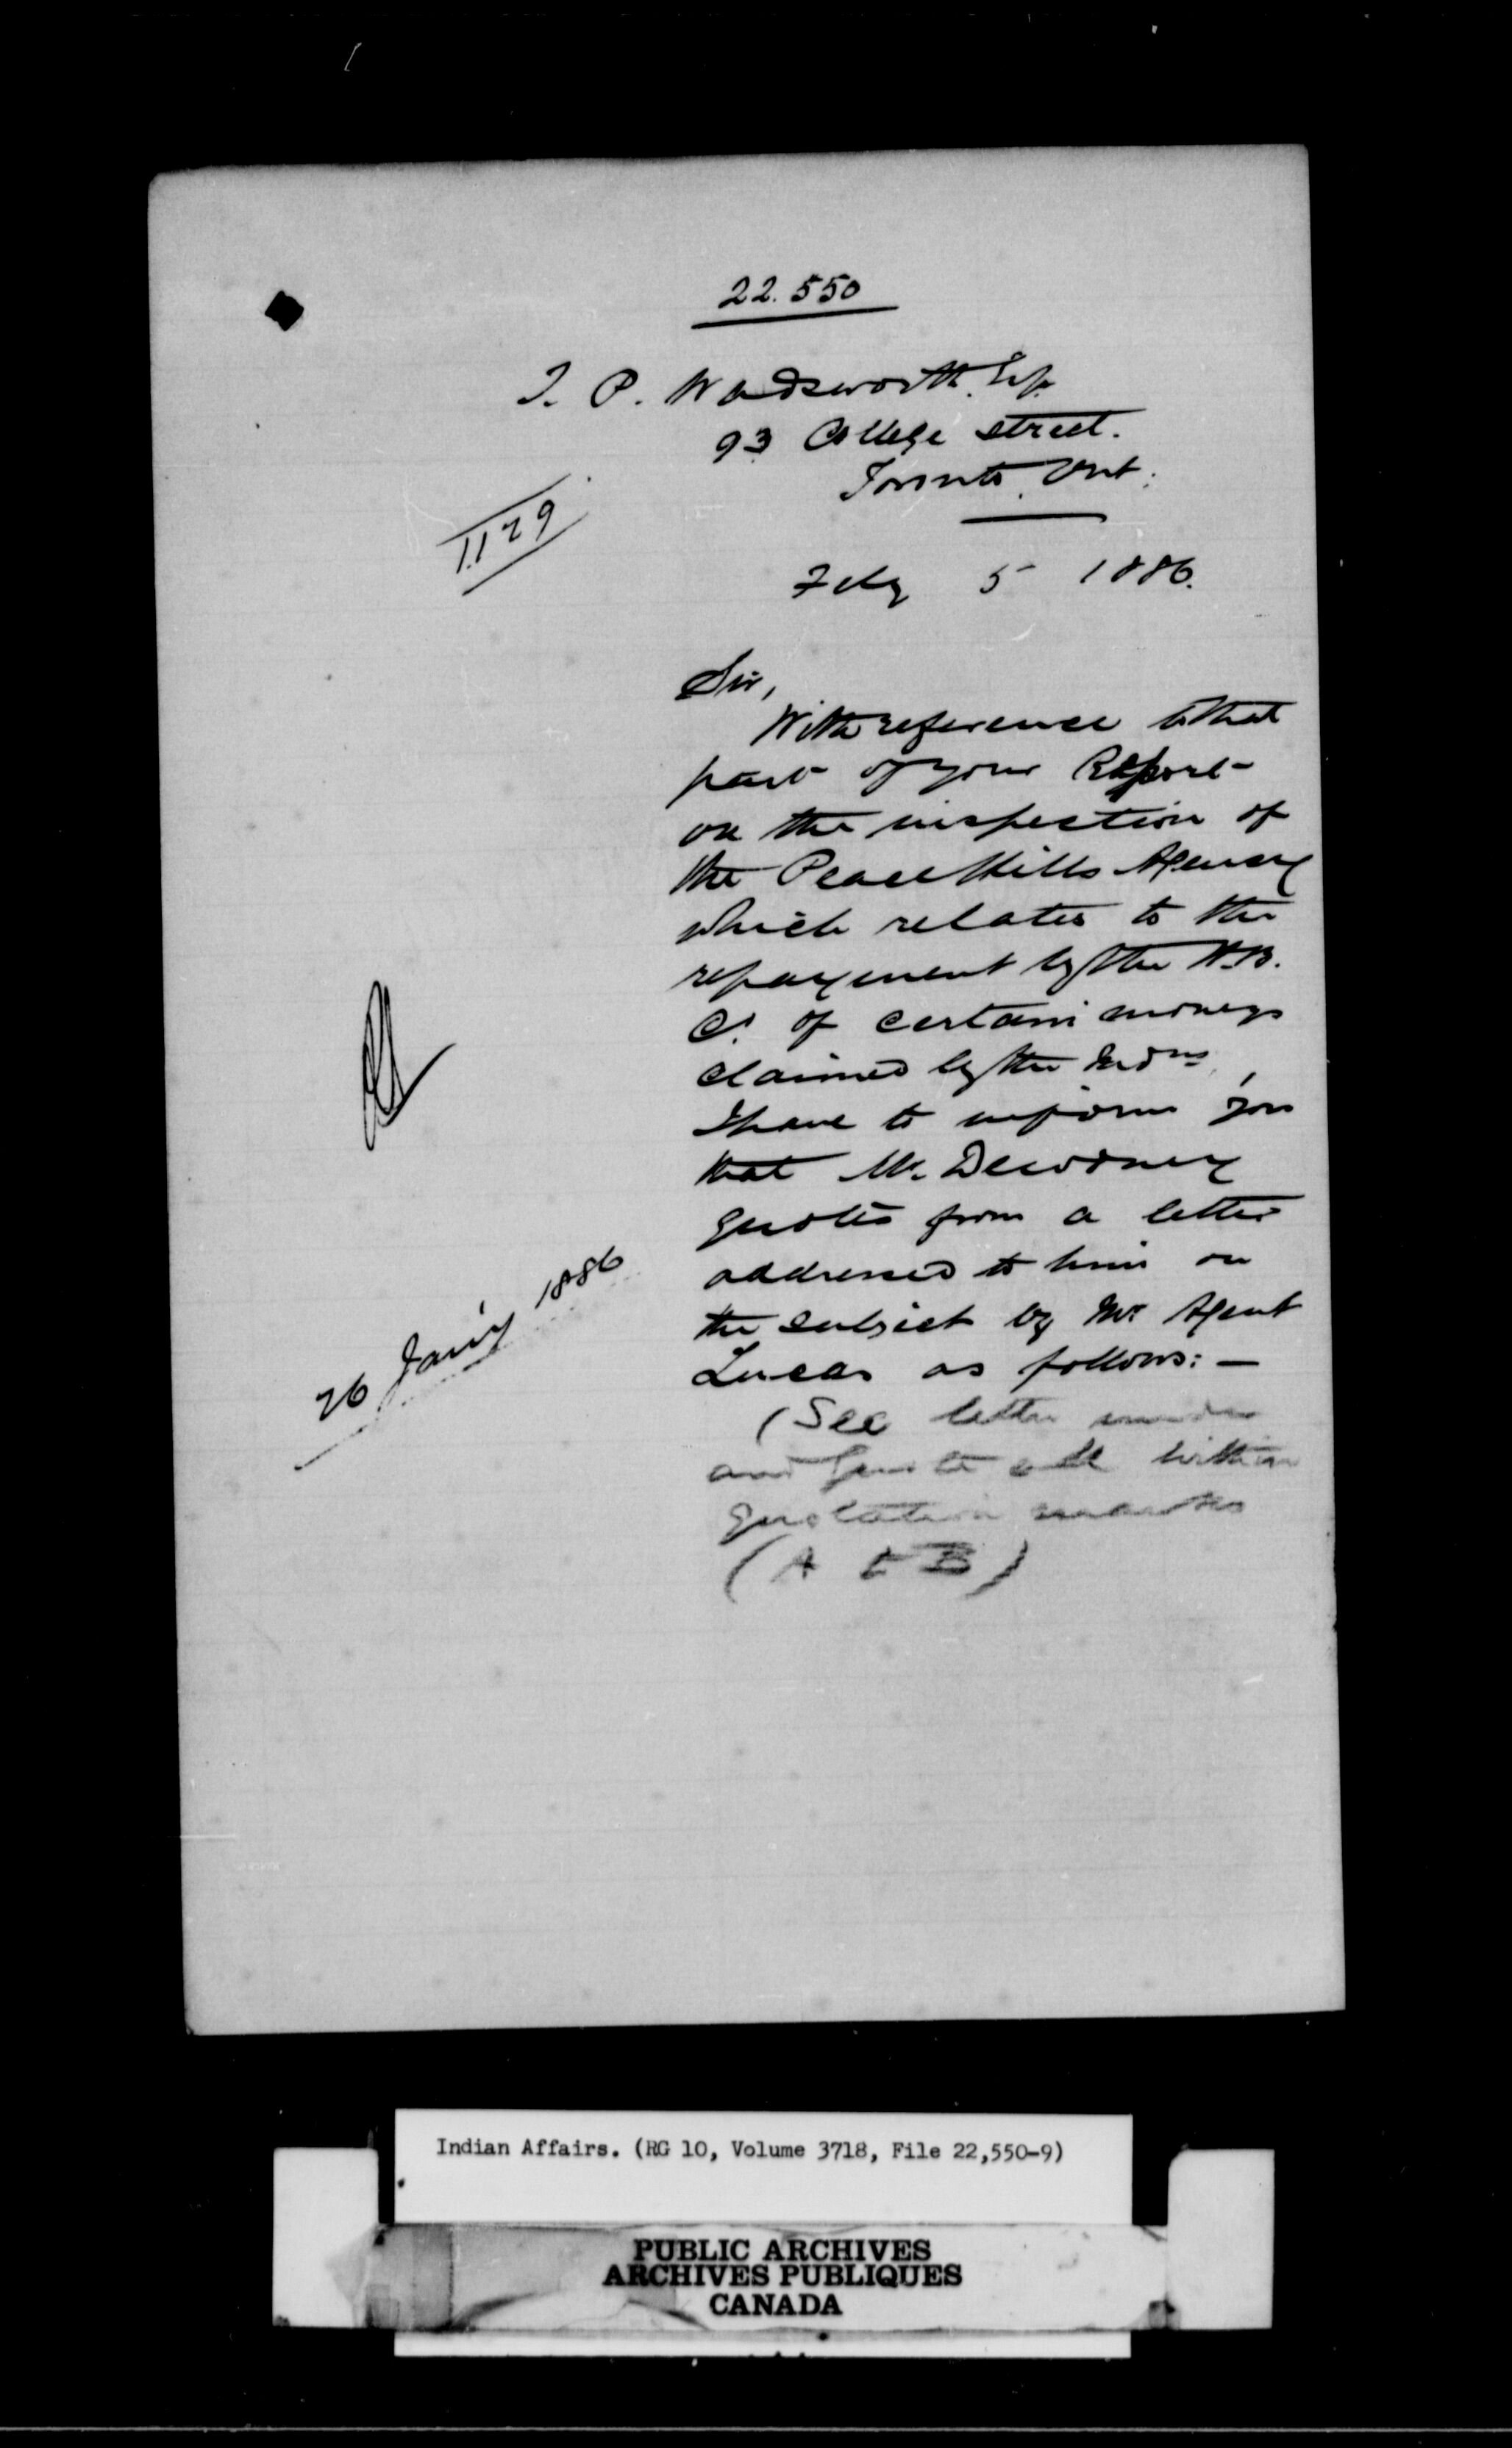 22.550
T. P. Wadsworth Esq.
93 College street.
Toronto. Ont.
1129
Feby 5 1886.
Sir,
With reference to that
part of your Report
on the inspection of
the Peace Hills Agency
which relates to the
repayment by the H.B.
Co. of certain moneys
claimed by the Indns,
I have to inform you
that Mr. Dewdney
quotes from a letter
addressed to him on
the subject by Mr Agent
Lucas as follows: —
26 Jan'y 1886
(See letter
and quote all within
quotation marks
(A to B)
Indian Affairs. (RG 10, Volume 3718, File 22,550-9)
PUBLIC ARCHIVES
ARCHIVES PUBLIQUES
CANADA